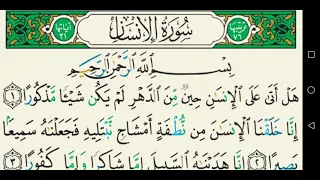 ترتيبها ٧٦ سُورَةُ الإِنْسَانِ آياتها ٣١
بِسْمِ اللَّهِ الرَّحْمَٰنِ الرَّحِيمِ
هَلْ أَتَىٰ عَلَى الْإِنسَٰنِ حِينٌ مِّنَ الدَّهْرِ لَمْ يَكُن شَيْـًٔا مَّذْكُورًا ١
إِنَّا خَلَقْنَا الْإِنسَٰنَ مِن نُّطْفَةٍ أَمْشَاجٍ نَّبْتَلِيهِ فَجَعَلْنَٰهُ سَمِيعًا
بَصِيرًا ٢ إِنَّا هَدَيْنَٰهُ السَّبِيلَ إِمَّا شَاكِرًا وَإِمَّا كَفُورًا ٣